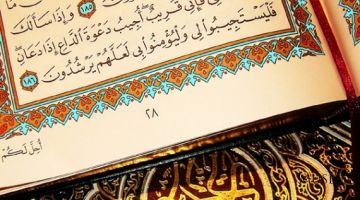 ١٨٥ وَإِذَا سَأَلَكَ
فَإِنِّي قَرِيبٌ أُجِيبُ دَعْوَةَ ٱلدَّاعِ إِذَا دَعَانِ
فَلْيَسْتَجِيبُوا۟ لِي وَلْيُؤْمِنُوا۟ بِي لَعَلَّهُمْ يَرْشُدُونَ ١٨٦
٢٨
أُحِلَّ لَكُمْ